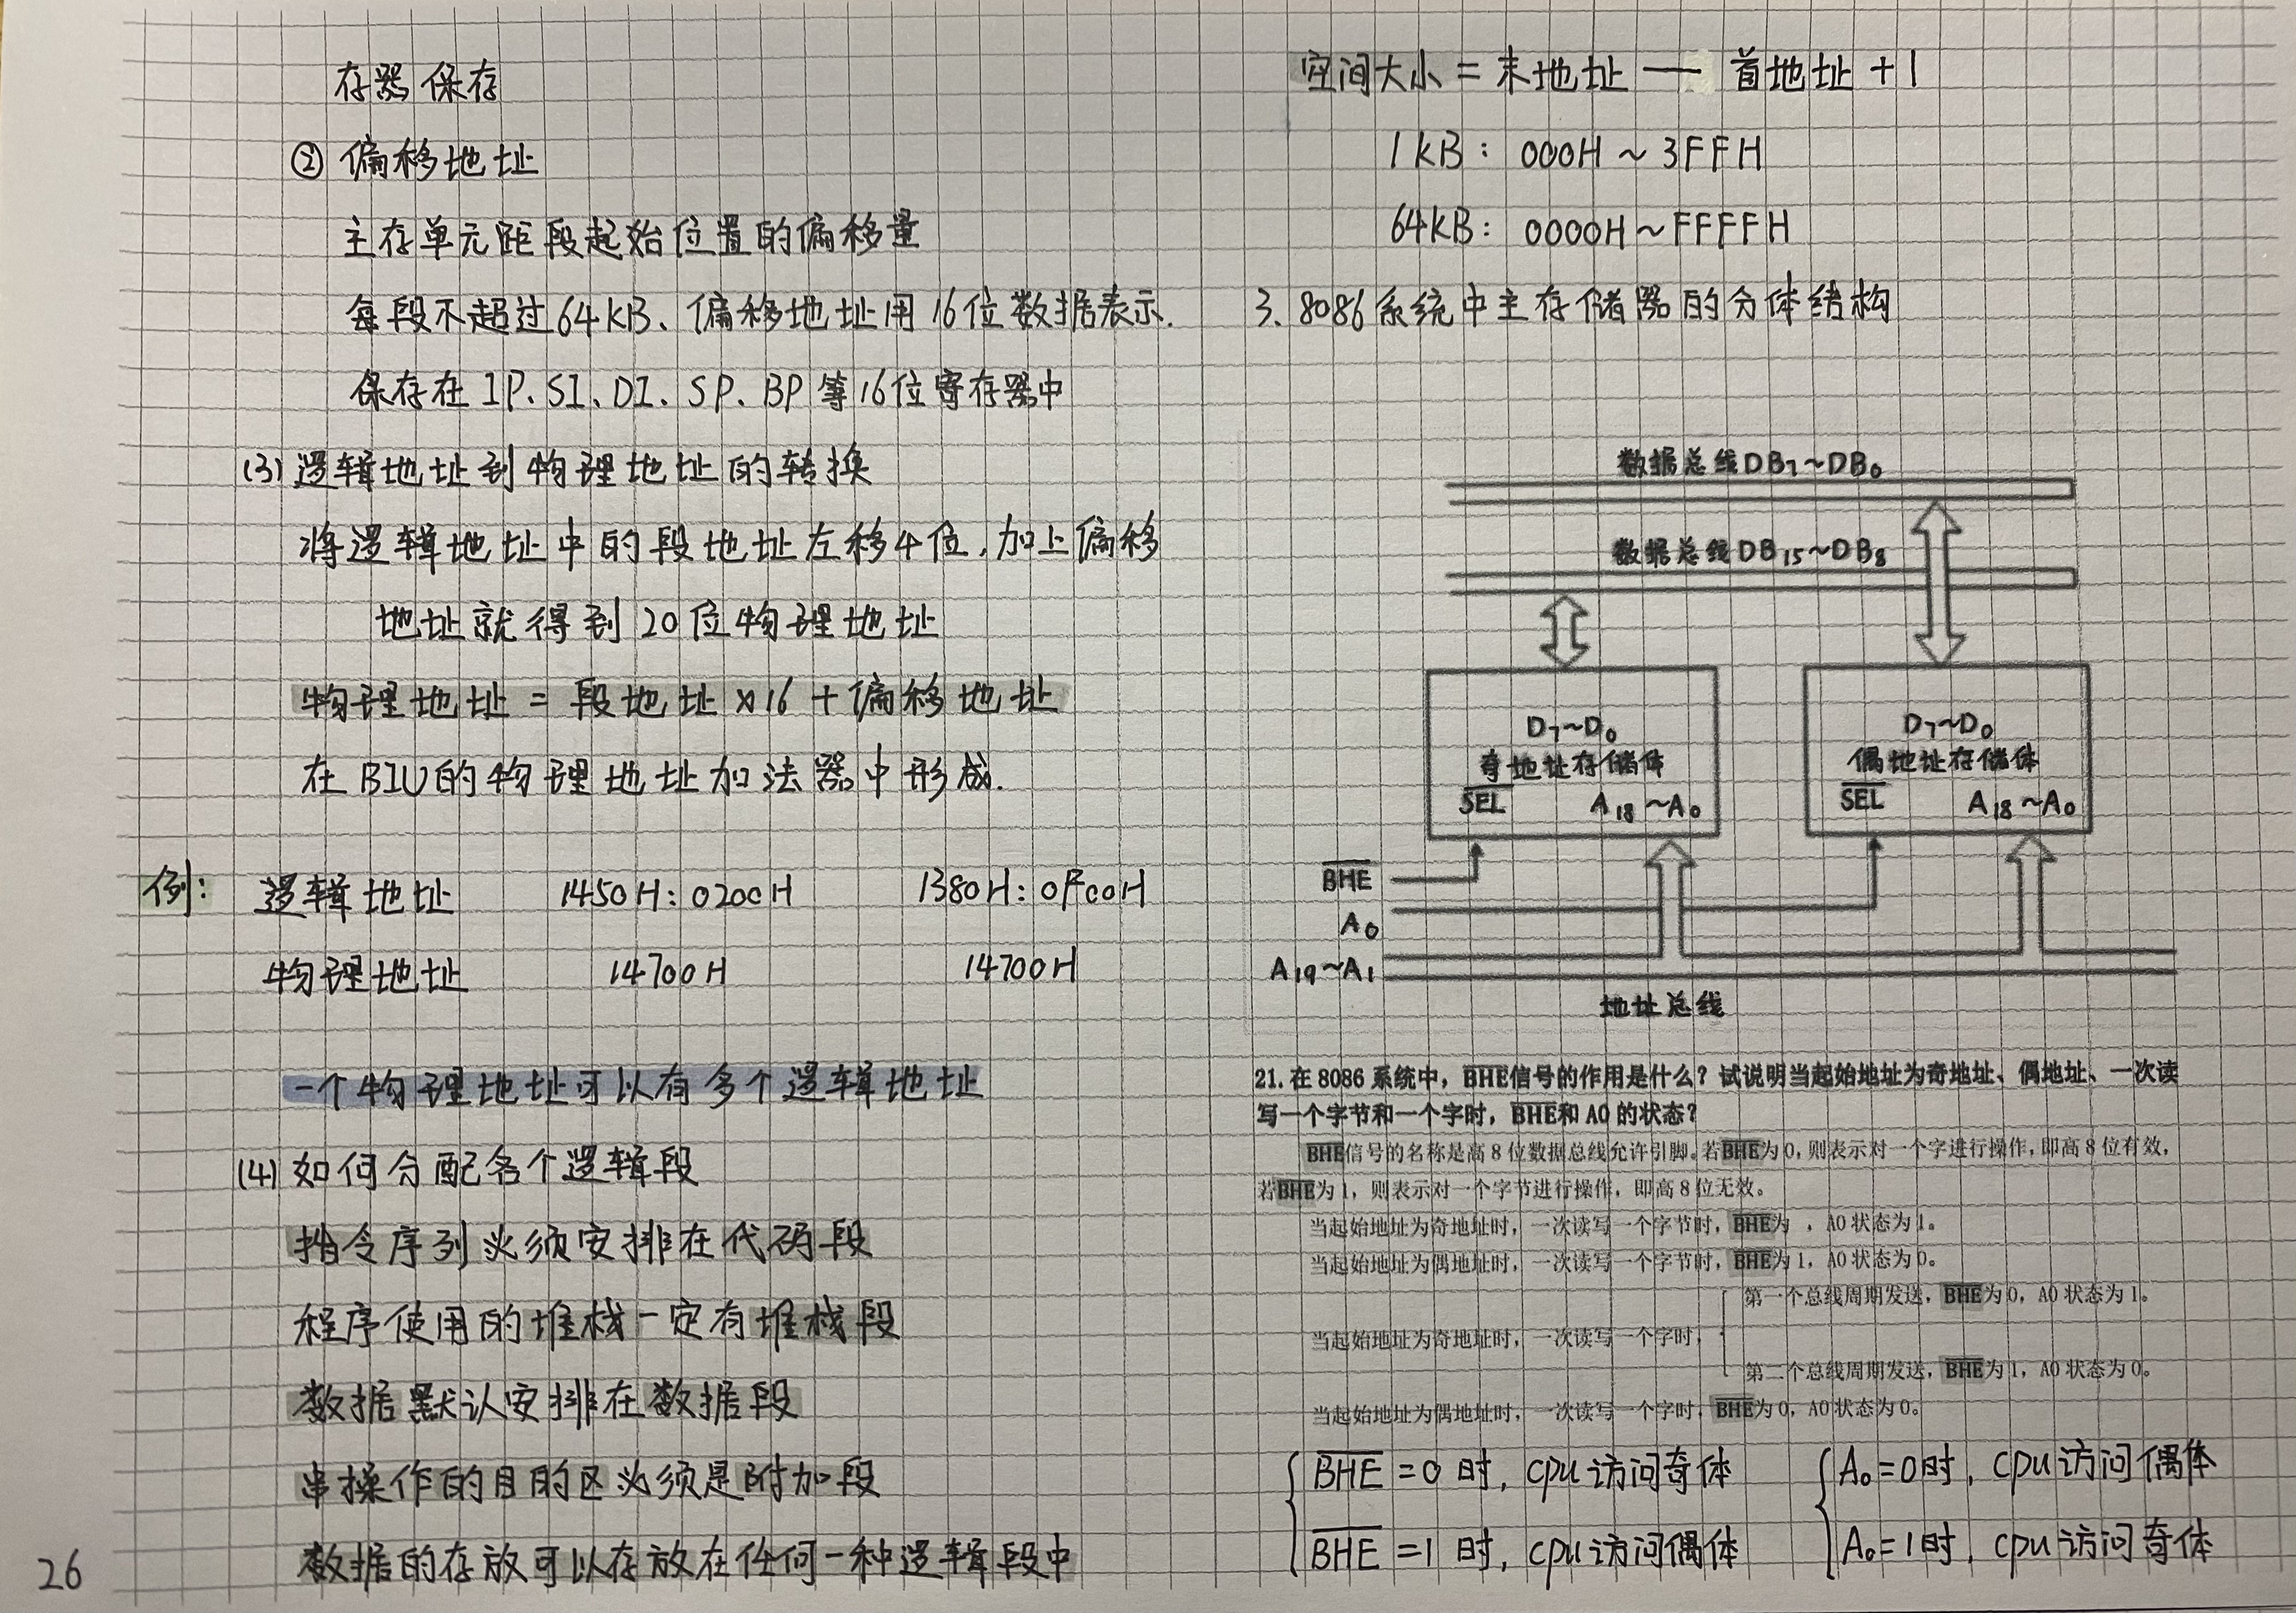 存器保存
② 偏移地址
主存单元距段起始位置的偏移量
每段不超过64KB、偏移地址用16位数据表示.
保存在 IP、SI、DI、SP、BP 等16位寄存器中
(3) 逻辑地址到物理地址的转换
将逻辑地址中的段地址左移4位,加上偏移
地址就得到20位物理地址
物理地址 = 段地址 ×16 + 偏移地址
在BIU的物理地址加法器中形成.
例: 逻辑地址 1450H:0200H 1380H:0F00H
物理地址 14700H 14700H
一个物理地址可以有多个逻辑地址
(4) 如何分配各个逻辑段
指令序列必须安排在代码段
程序使用的堆栈一定有堆栈段
数据默认安排在数据段
串操作的目的区必须是附加段
数据的存放可以存放在任何一种逻辑段中
26
空间大小 = 末地址 — 首地址 +1
1KB: 000H ~ 3FFH
64KB: 0000H ~ FFFFH
3. 8086系统中主存储器的分体结构
数据总线DB7~DB0
数据总线DB15~DB8
D7~D0 D7~D0
奇地址存储体 偶地址存储体
SEL A18~A0 SEL A18~A0
BHE
A0
A19~A1
地址总线
21. 在 8086 系统中, BHE信号的作用是什么? 试说明当起始地址为奇地址、偶地址、一次读
写一个字节和一个字时, BHE和 A0 的状态?
BHE信号的名称是高 8 位数据总线允许引脚。若BHE为 0, 则表示对一个字进行操作, 即高 8 位有效,
若BHE为 1, 则表示对一个字节进行操作, 即高 8 位无效。
当起始地址为奇地址时, 一次读写一个字节时, BHE为 , A0 状态为 1。
当起始地址为偶地址时, 一次读写一个字节时, BHE为 1, A0 状态为 0。
第一个总线周期发送, BHE为 0, A0 状态为 1。
当起始地址为奇地址时, 一次读写一个字时,
第二个总线周期发送, BHE为 1, A0 状态为 0。
当起始地址为偶地址时, 一次读写一个字时, BHE为 0, A0 状态为 0。
BHE =0 时, cpu访问奇体 A0=0时, cpu访问偶体
BHE =1 时, cpu访问偶体 A0=1时, cpu访问奇体